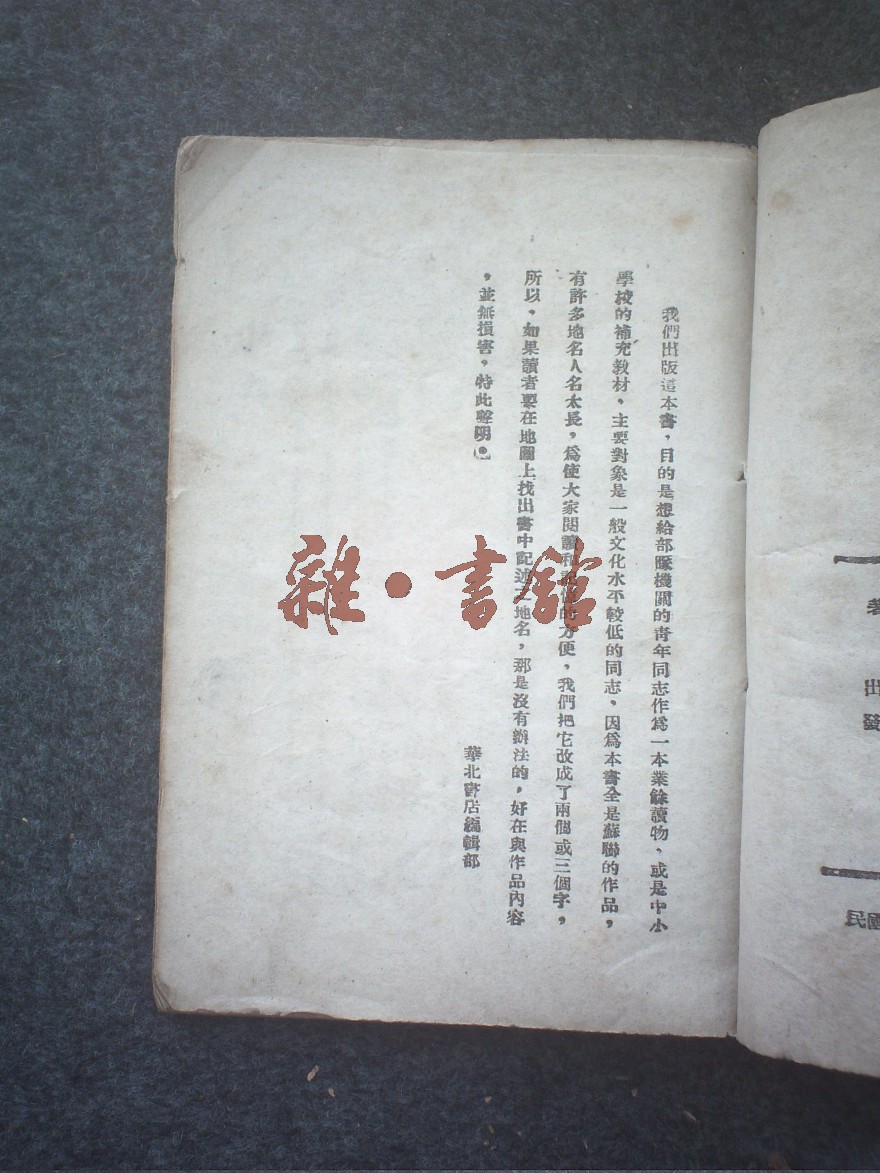 我們出版這本書，目的是想給部隊機關的青年同志作爲一本業餘讀物，或是中小
學校的補充教材，主要對象是一般文化水平較低的同志，因爲本書全是蘇聯的作品，
有許多地名人名太長，爲使大家閱讀和記憶的方便，我們把它改成了兩個或三個字，
所以，如果讀者要在地圖上找出書中記述之地名，那是沒有辦法的，好在與作品內容
，並無損害，特此聲明。
華北書店編輯部
雜·書館
出
發
民國